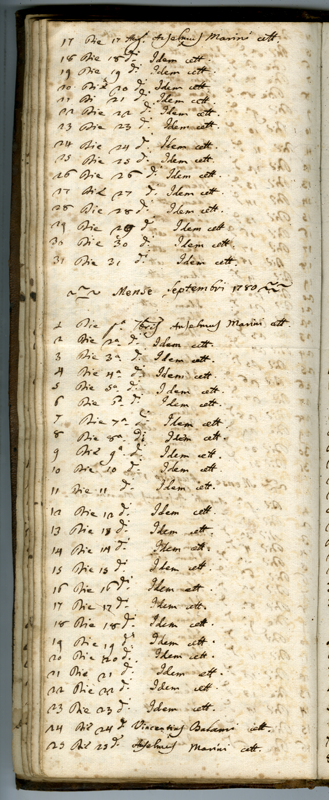 17 Die 17 Augti Anselmus Marini cett.
18 Die 18 di. Idem cett.
19 Die 19 di. Idem cett.
20 Die 20 di. Idem cett.
21 Di 21 di. Idem cett.
22 Die 22 di. Idem cett.
23 Die 23 di. Idem cett.
24 Die 24 di. Idem cett.
25 Die 25 di. Idem cett.
26 Die 26 di. Idem cett.
27 Die 27 di. Idem cett.
28 Die 28 di. Idem cett.
29 Die 29 di. Idem cett.
30 Die 30 di. Idem cett.
31 Die 31 di. Idem cett.
Mense Septembri 1780
1 Die 1a 7bris Anselmus Marini cett.
2 Die 2a di. Idem cett.
3 Die 3a di. Idem cett.
4 Die 4a di. Idem cett.
5 Die 5a di. Idem cett.
6 Die 6a di. Idem cett.
7 Die 7a di. Idem cett.
8 Die 8a di. Idem cett.
9 Die 9a di. Idem cett.
10 Die 10 di. Idem cett.
11 Die 11 di. Idem cett.
12 Die 12 di. Idem cett.
13 Die 13 di. Idem cett.
14 Die 14 di. Idem cett.
15 Die 15 di. Idem cett.
16 Die 16 di. Idem cett.
17 Die 17 di. Idem cett.
18 Die 18 di. Idem cett.
19 Die 19 di. Idem cett.
20 Die 20 di. Idem cett.
21 Die 21 di. Idem cett.
22 Die 22 di. Idem cett.
23 Die 23 di. Idem cett.
24 Die 24 di. Vincentius cett.
25 Die 25 di. Anselmus Marini cett.